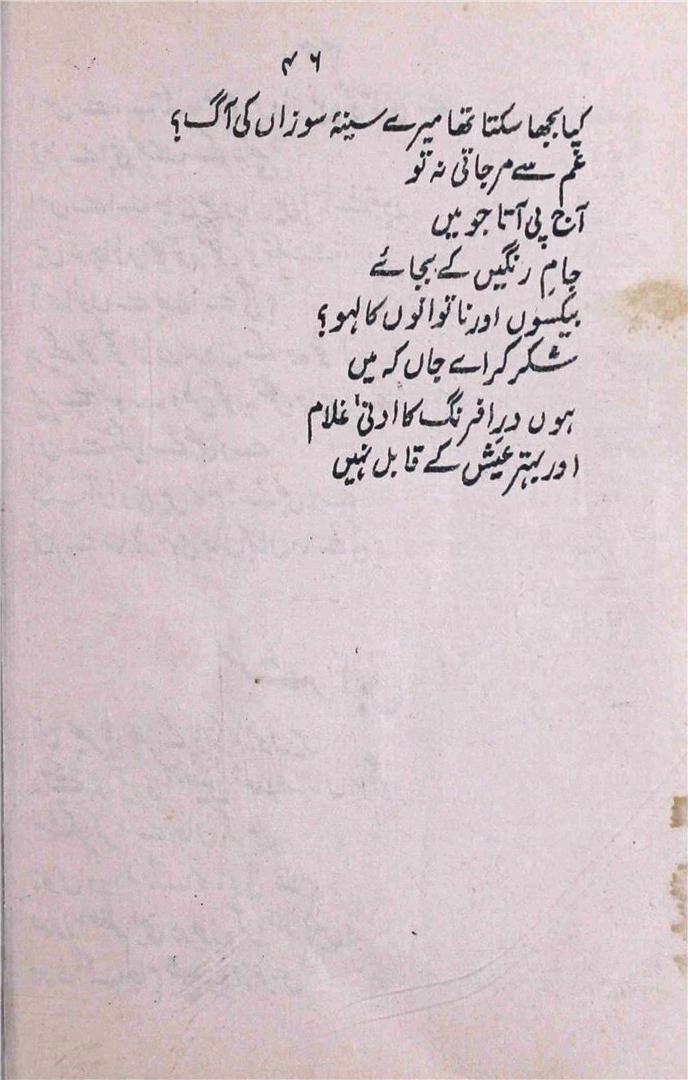 ۴۶
کیا بجھا سکتا تھا میرے سینۂ سوزاں کی آگ؟
غم سے مر جاتی نہ تو
آج پی آتا جو میں
جامِ رنگیں کے بجائے
بیکسوں اور ناتوانوں کا لہو؟
شکر کر اے جاں کہ میں
ہوں درِ افرنگ کا ادنیٰ غلام
اور بہتر عیش کے قابل نہیں